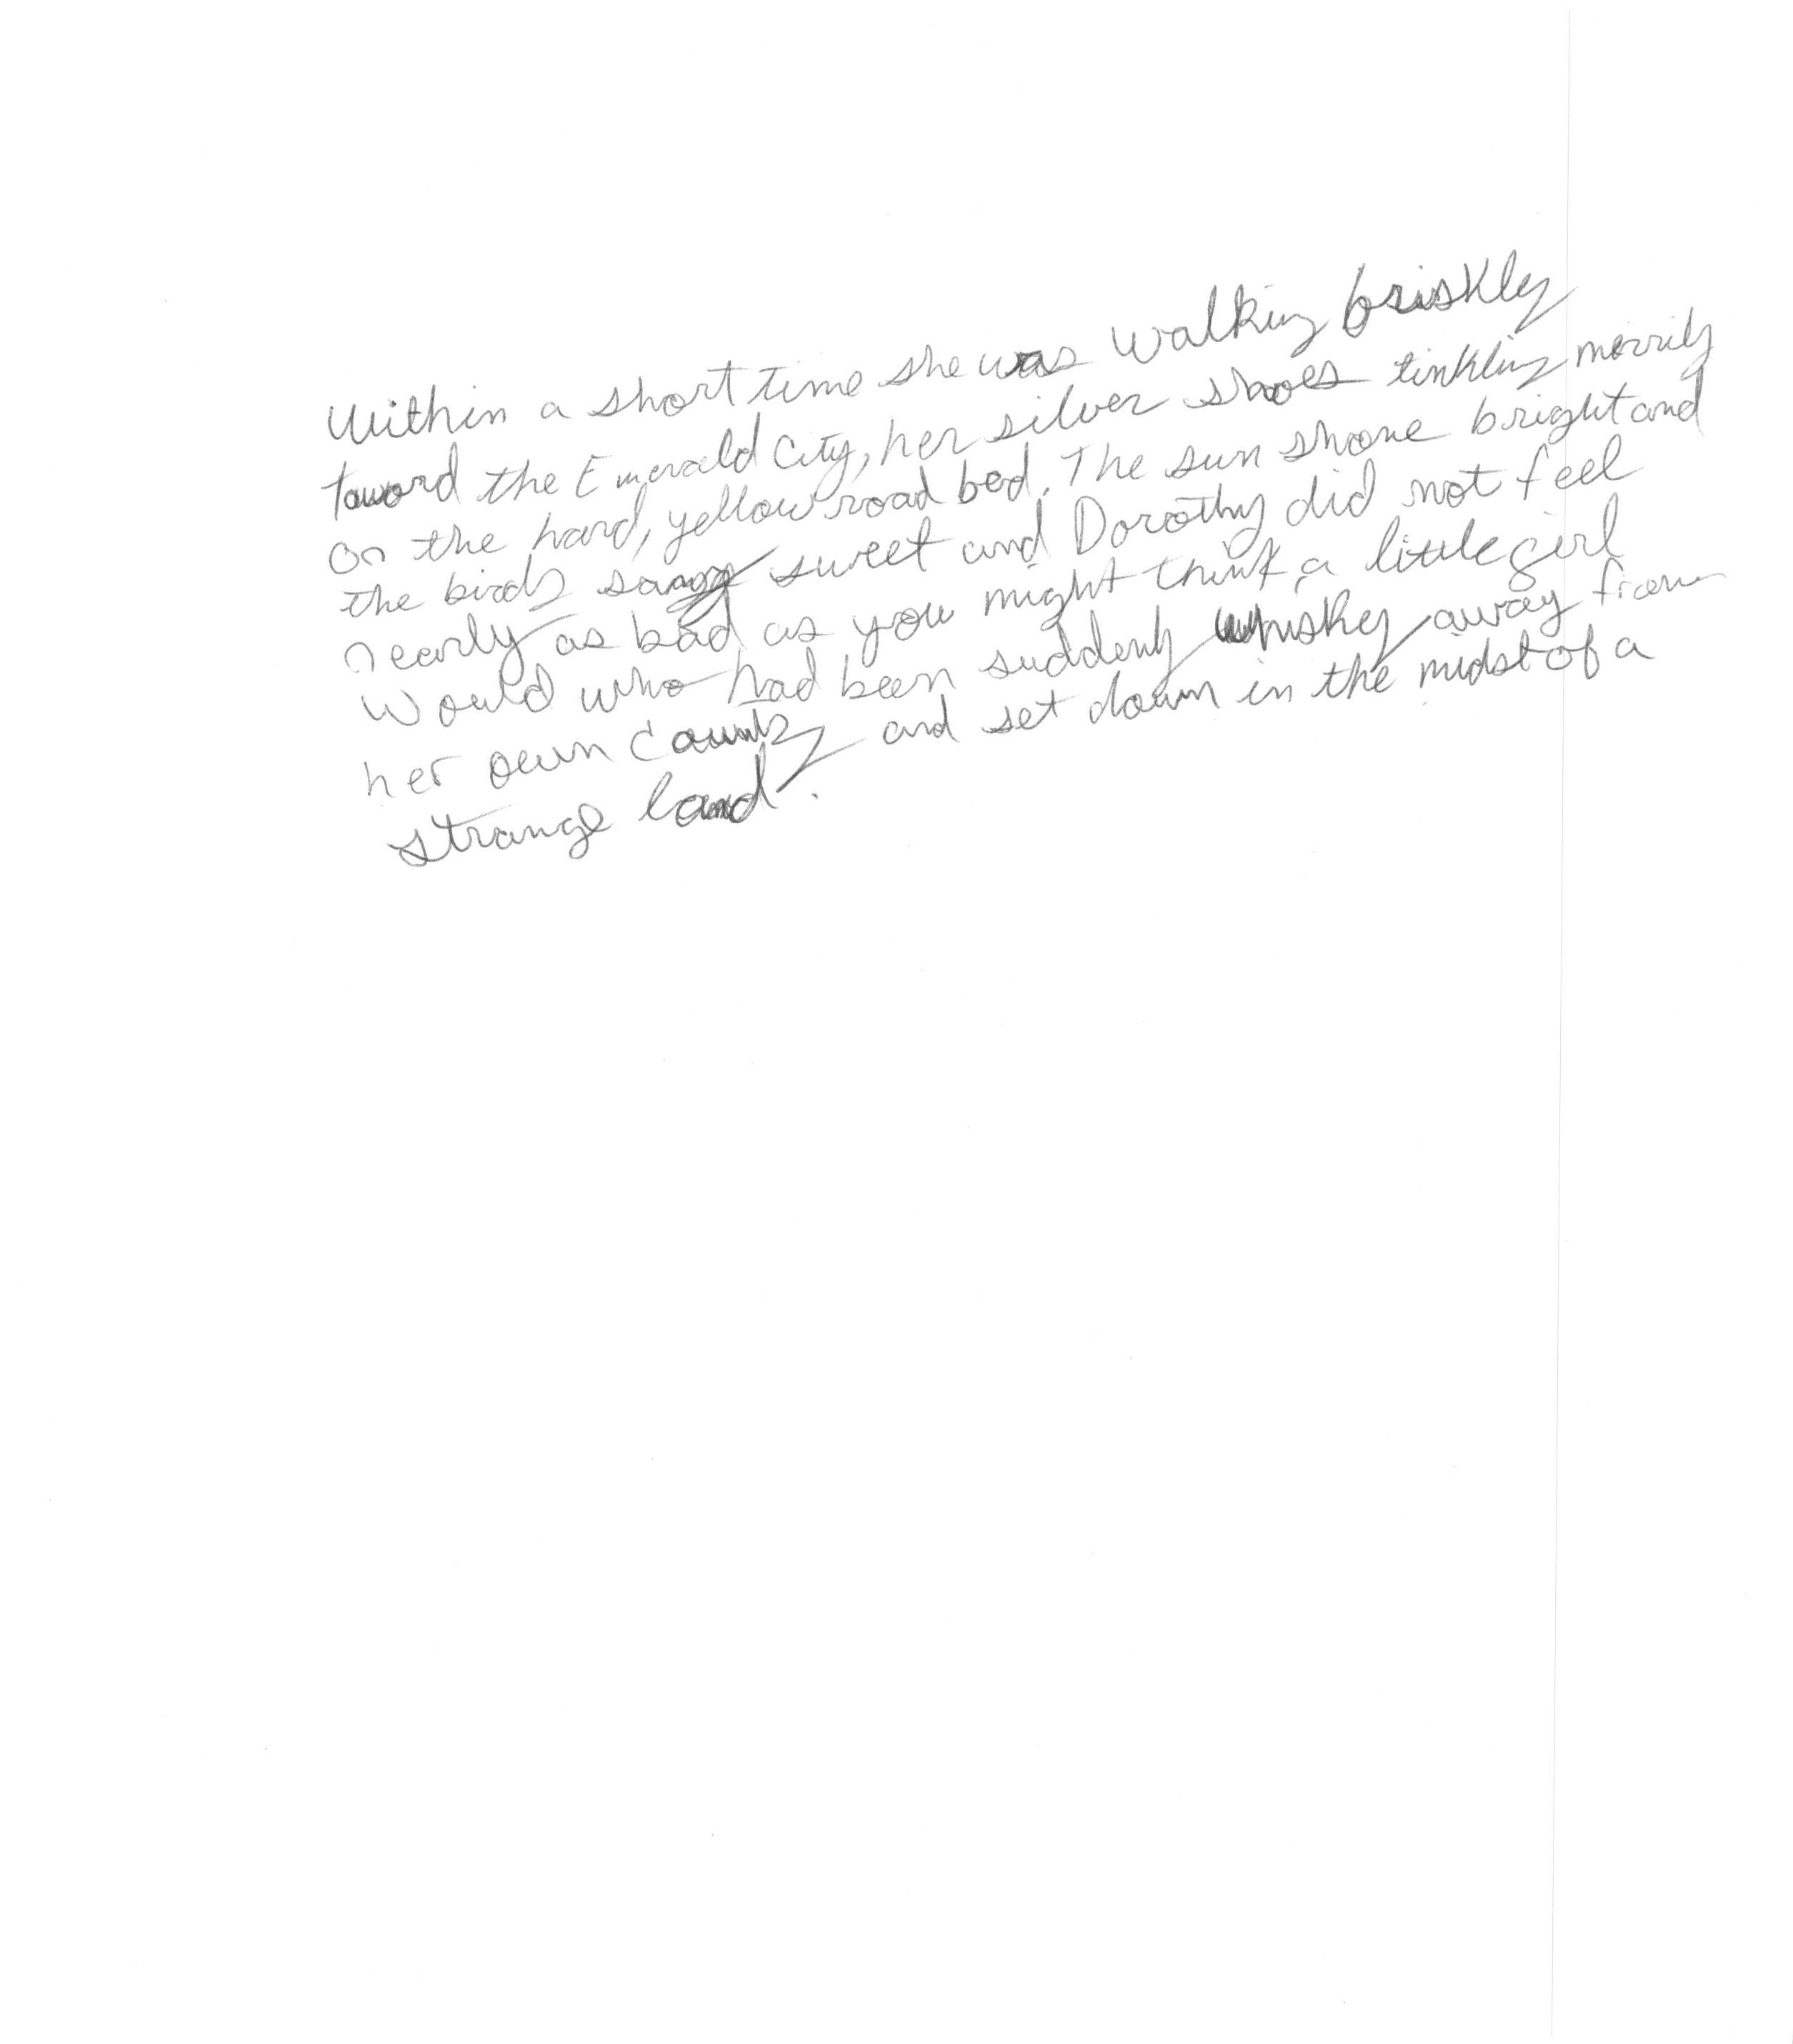 Within a short time she was walking briskly
toward the Emerald City, her silver shoes tinkling merrily
on the hard, yellow road bed. The sun shone bright and
the birds sang sweet and Dorothy did not feel
nearly as bad as you might think a little girl
would who had been suddenly whiskey away from
her own country and set down in the midst of a
strange land.